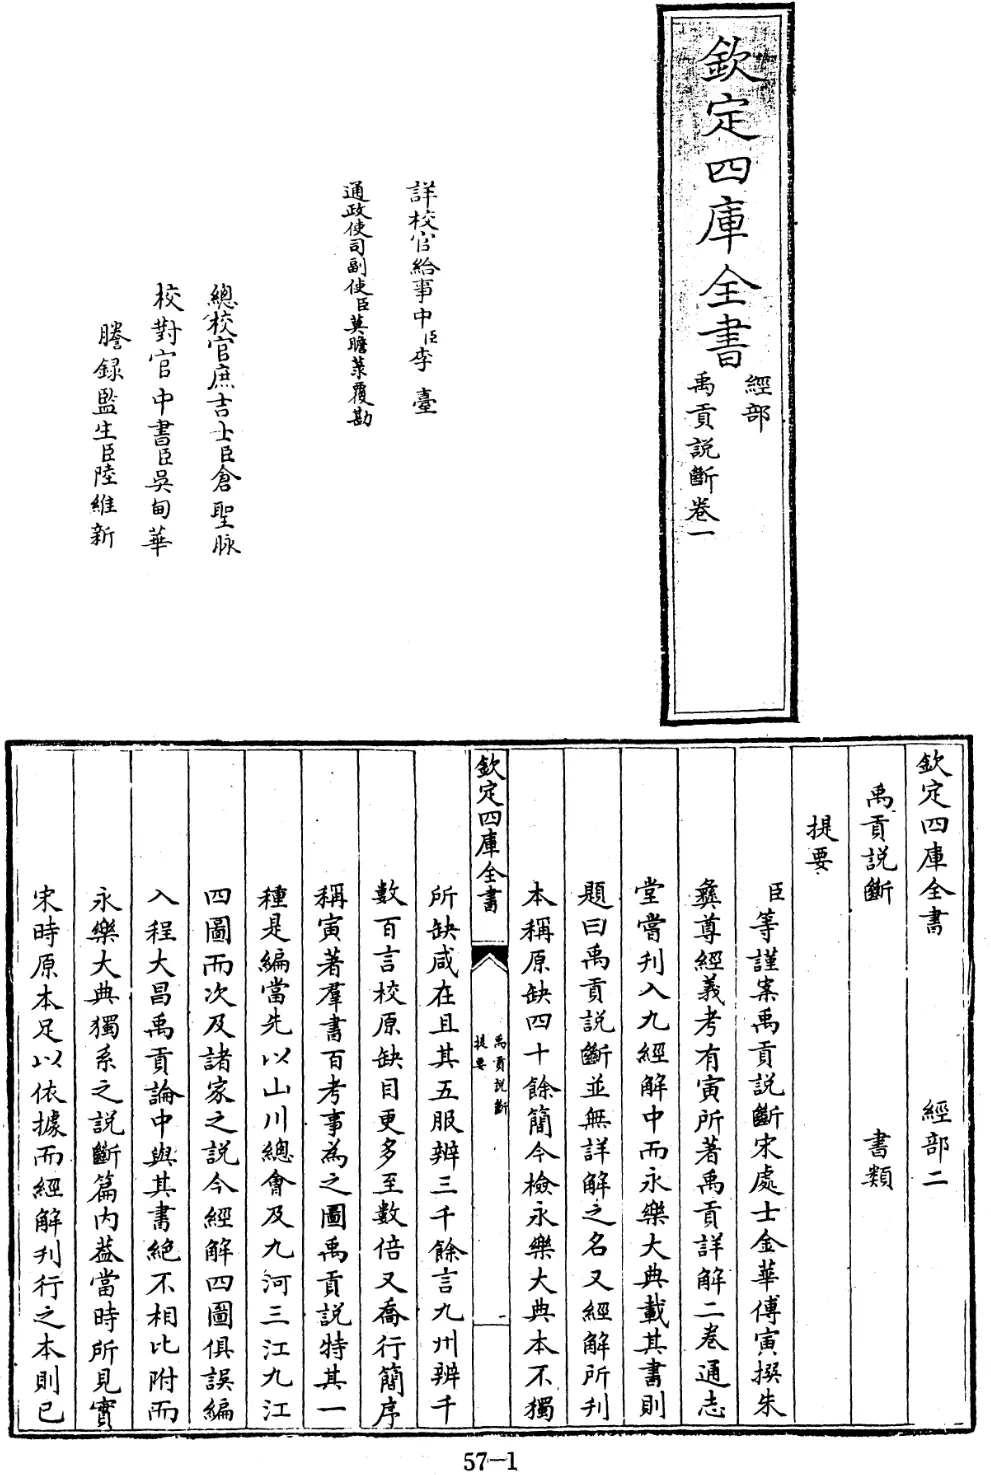 欽定四庫全書
經部
禹貢説斷卷一
詳校官給事中臣李臺
通政使司副使臣莫瞻菉覆勘
總校官庶吉士臣倉聖脉
校對官中書臣吳甸華
謄録監生臣陸維新
欽定四庫全書 經部二
禹貢説斷 書類
提要
臣等謹案禹貢説斷宋處士金華傅寅撰朱
彝尊經義考有寅所著禹貢詳解二卷通志
堂嘗刋入九經解中而永樂大典載其書則
題曰禹貢説斷並無詳解之名又經解所刋
本稱原缺四十餘簡今檢永樂大典本不獨
欽定四庫全書
禹貢説斷
提要
一
所缺咸在且其五服辨三千餘言九州辨千
數百言校原缺目更多至數倍又喬行簡序
稱寅著羣書百考事為之圖禹貢説特其一
種是編當先以山川總會及九河三江九江
四圖而次及諸家之説今經解四圖俱誤編
入程大昌禹貢論中與其書絶不相比附而
永樂大典獨系之説斷篇内葢當時所見實
宋時原本足以依據而經解刋行之本則已
57—1